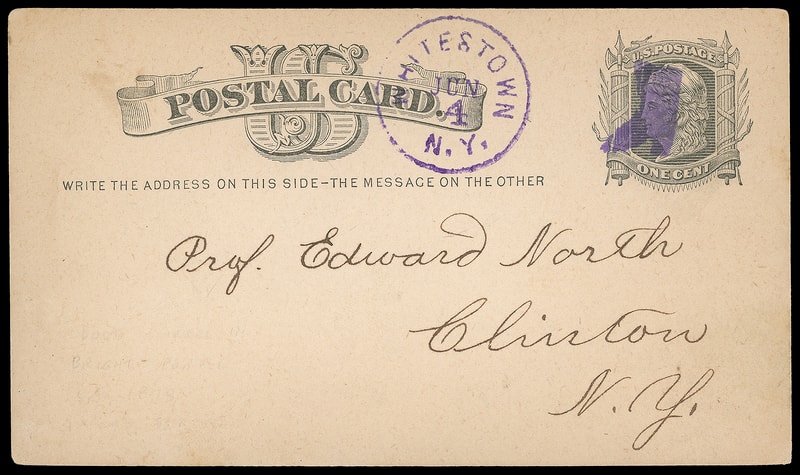 US
POSTAL CARD.
WHITESTOWN
JUN
4
N.Y.
U.S. POSTAGE
ONE CENT
WRITE THE ADDRESS ON THIS SIDE–THE MESSAGE ON THE OTHER
Prof. Edward North
Clinton
N.Y.